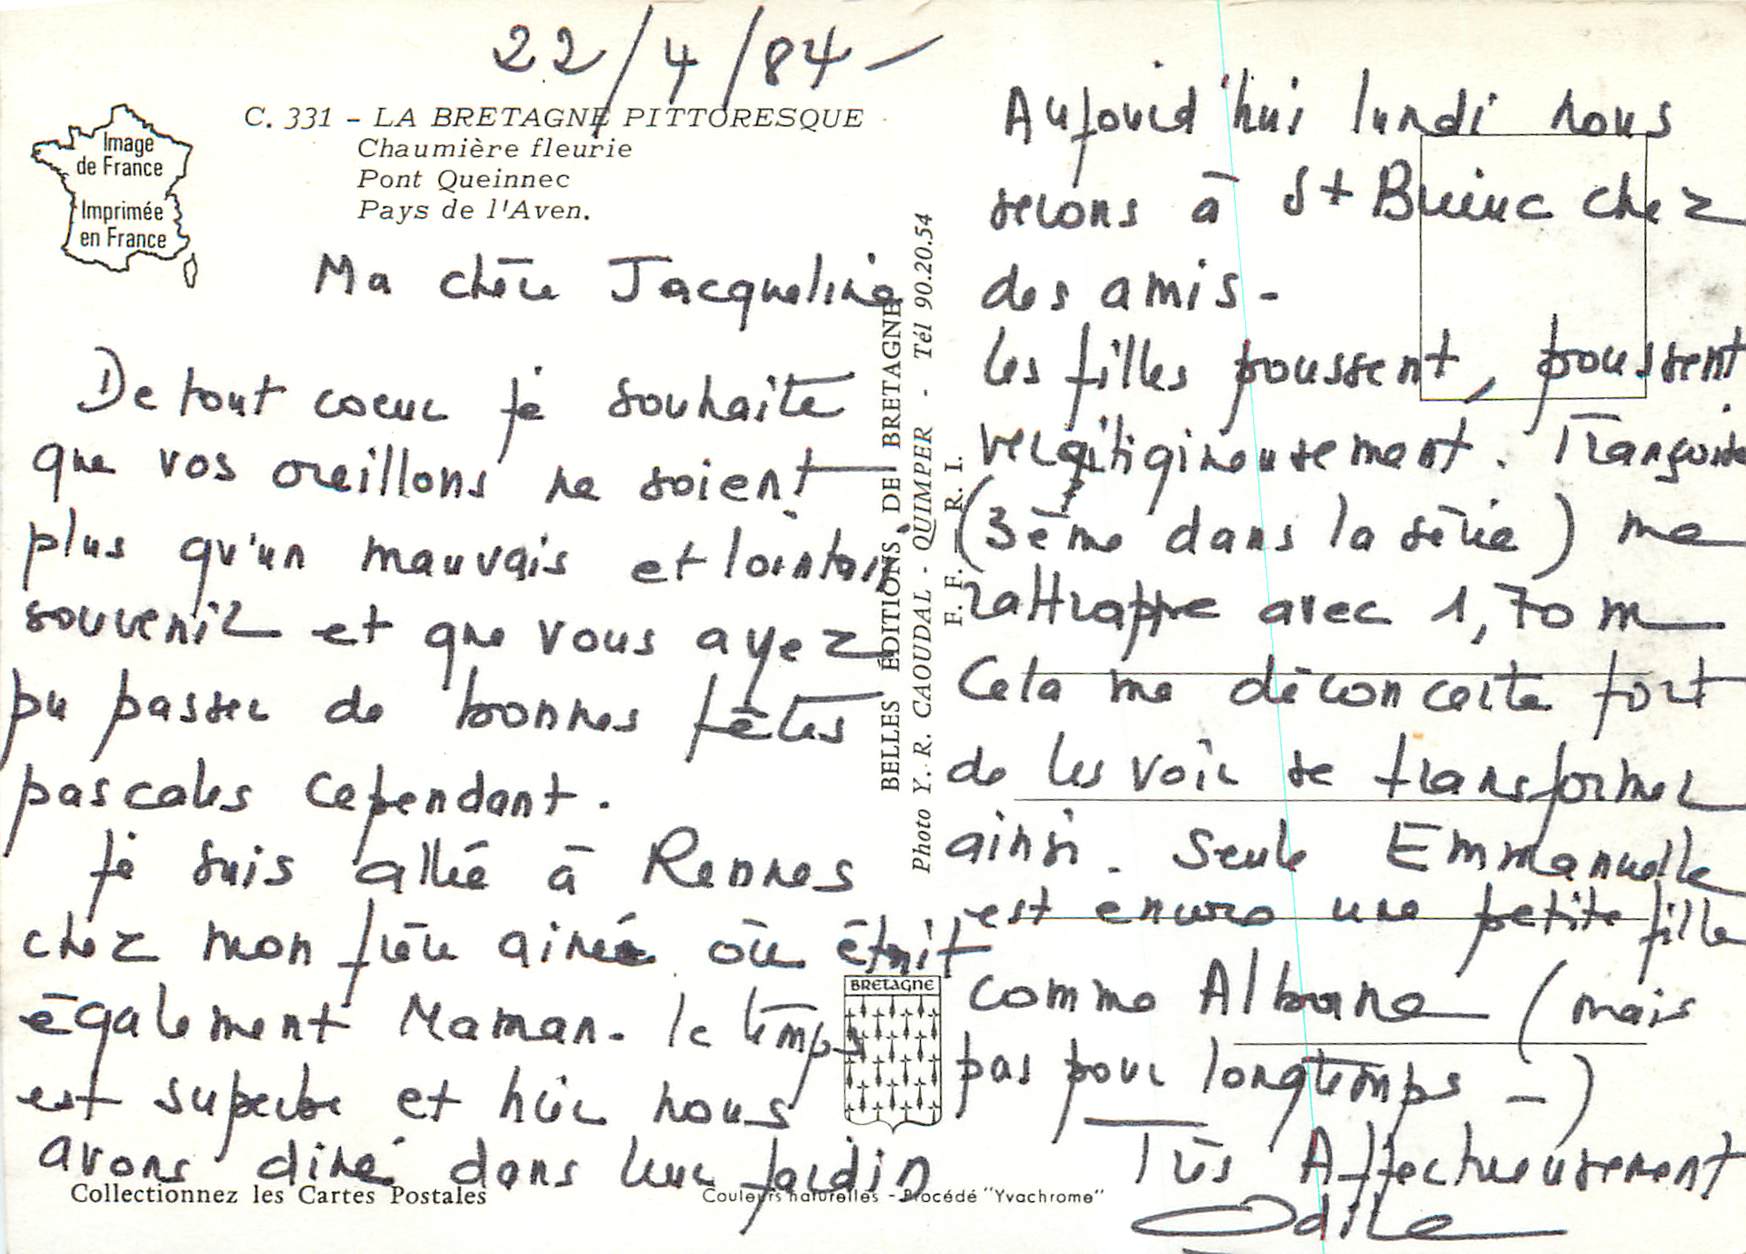 22/4/84 –
C. 331 – LA BRETAGNE PITTORESQUE
Chaumière fleurie
Pont Queinnec
Pays de l'Aven.
Image
de France
Imprimée
en France
Ma chère Jacqueline
De tout coeur je souhaite
que vos oreillons ne soient
plus qu'un mauvais et lointain
souvenir et que vous ayez
pu passer de bonnes fêtes
pascales cependant.
Je suis allée à Rennes
chez mon frère ainé où était
également Maman. le temps
est superbe et hier nous
avons diné dans leur jardin
Collectionnez les Cartes Postales
BELLES ÉDITIONS DE BRETAGNE
Photo Y. R. CAOUDAL - QUIMPER - Tél 90.20.54
F. F. – R. I.
BRETAGNE
Couleurs naturelles - Procédé "Yvachrome"
Aujourd'hui lundi nous
serons à St Brieuc chez
des amis -
les filles poussent, poussent
vertigineusement. Françoise
(3ème dans la série) me
rattrappe avec 1,70 m
Cela me déconcerte fort
de les voir se transformer
ainsi. Seule Emmanuelle
est encore une petite fille
comme Albane (mais
pas pour longtemps –)
Très Affectueusement
Odile